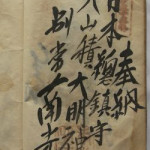 奉納
日本總鎮守
大山積大明神
別當大南寺